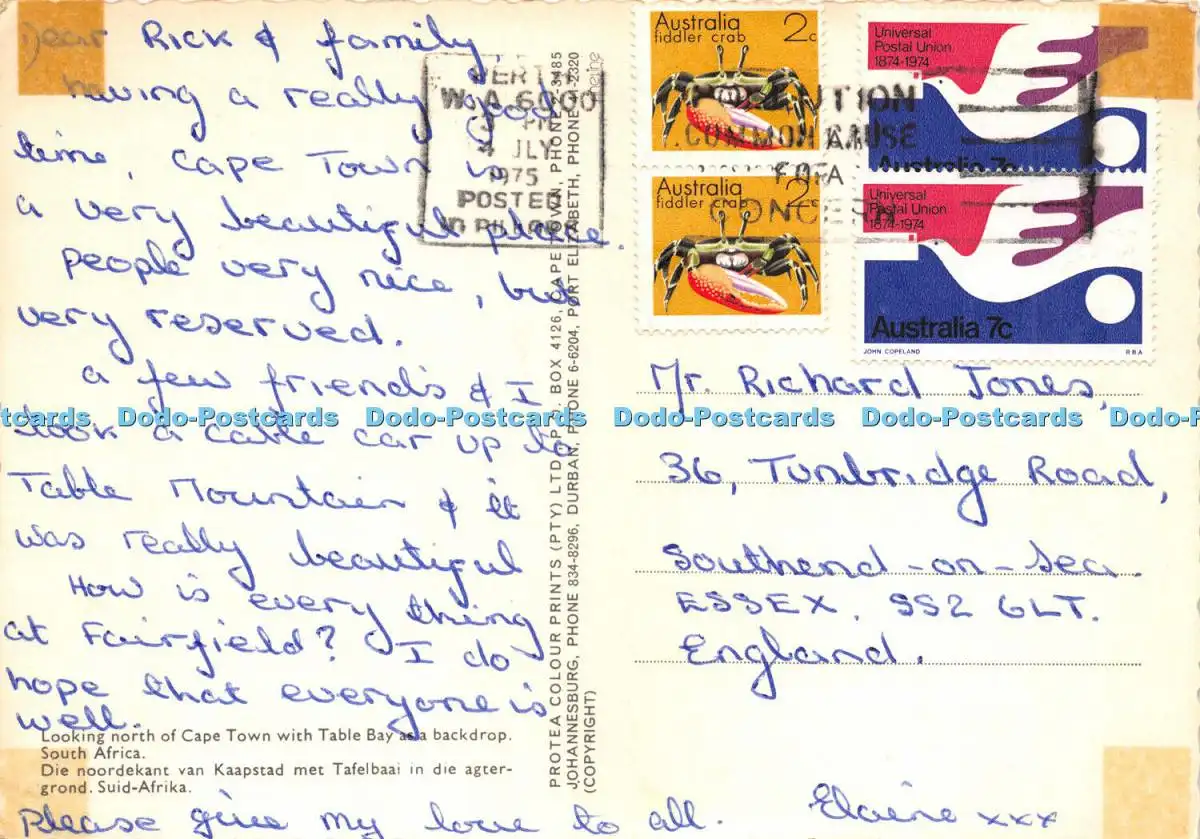 Dear Rick & family,
having a really good
time, Cape Town is
a very beautiful place.
People very nice, but
very reserved.
a few friends & I
took a cable car up to
Table Mountain & it
was really beautiful
How is every thing
at Fairfield? I do
hope that everyone is
well.
Looking north of Cape Town with Table Bay as a backdrop.
South Africa.
Die noordekant van Kaapstad met Tafelbaai in die agter-
grond. Suid-Afrika.
Please give my love to all. Elaine xxx
PERTH
W.A. 6000
PM
4 JLY
1975
POSTED
COMMON CAUSE
FOR A
CONCERN
PROTEA COLOUR PRINTS (PTY) LTD., P.O. BOX 4126, CAPE TOWN, PHONE 2-3485
JOHANNESBURG, PHONE 834-8296, DURBAN, PHONE 6-6204, PORT ELIZABETH, PHONE 4-2320
(COPYRIGHT)
Australia 2c
fiddler crab
Australia 2c
fiddler crab
Universal
Postal Union
1874-1974
Australia 7c
Universal
Postal Union
1874-1974
Australia 7c
JOHN COPELAND RBA
Mr. Richard Jones,
36, Tunbridge Road,
Southend-on-Sea.
ESSEX. SS2 6LT.
England.
Dodo-Postcards Dodo-Postcards Dodo-Postcards Dodo-Postcards